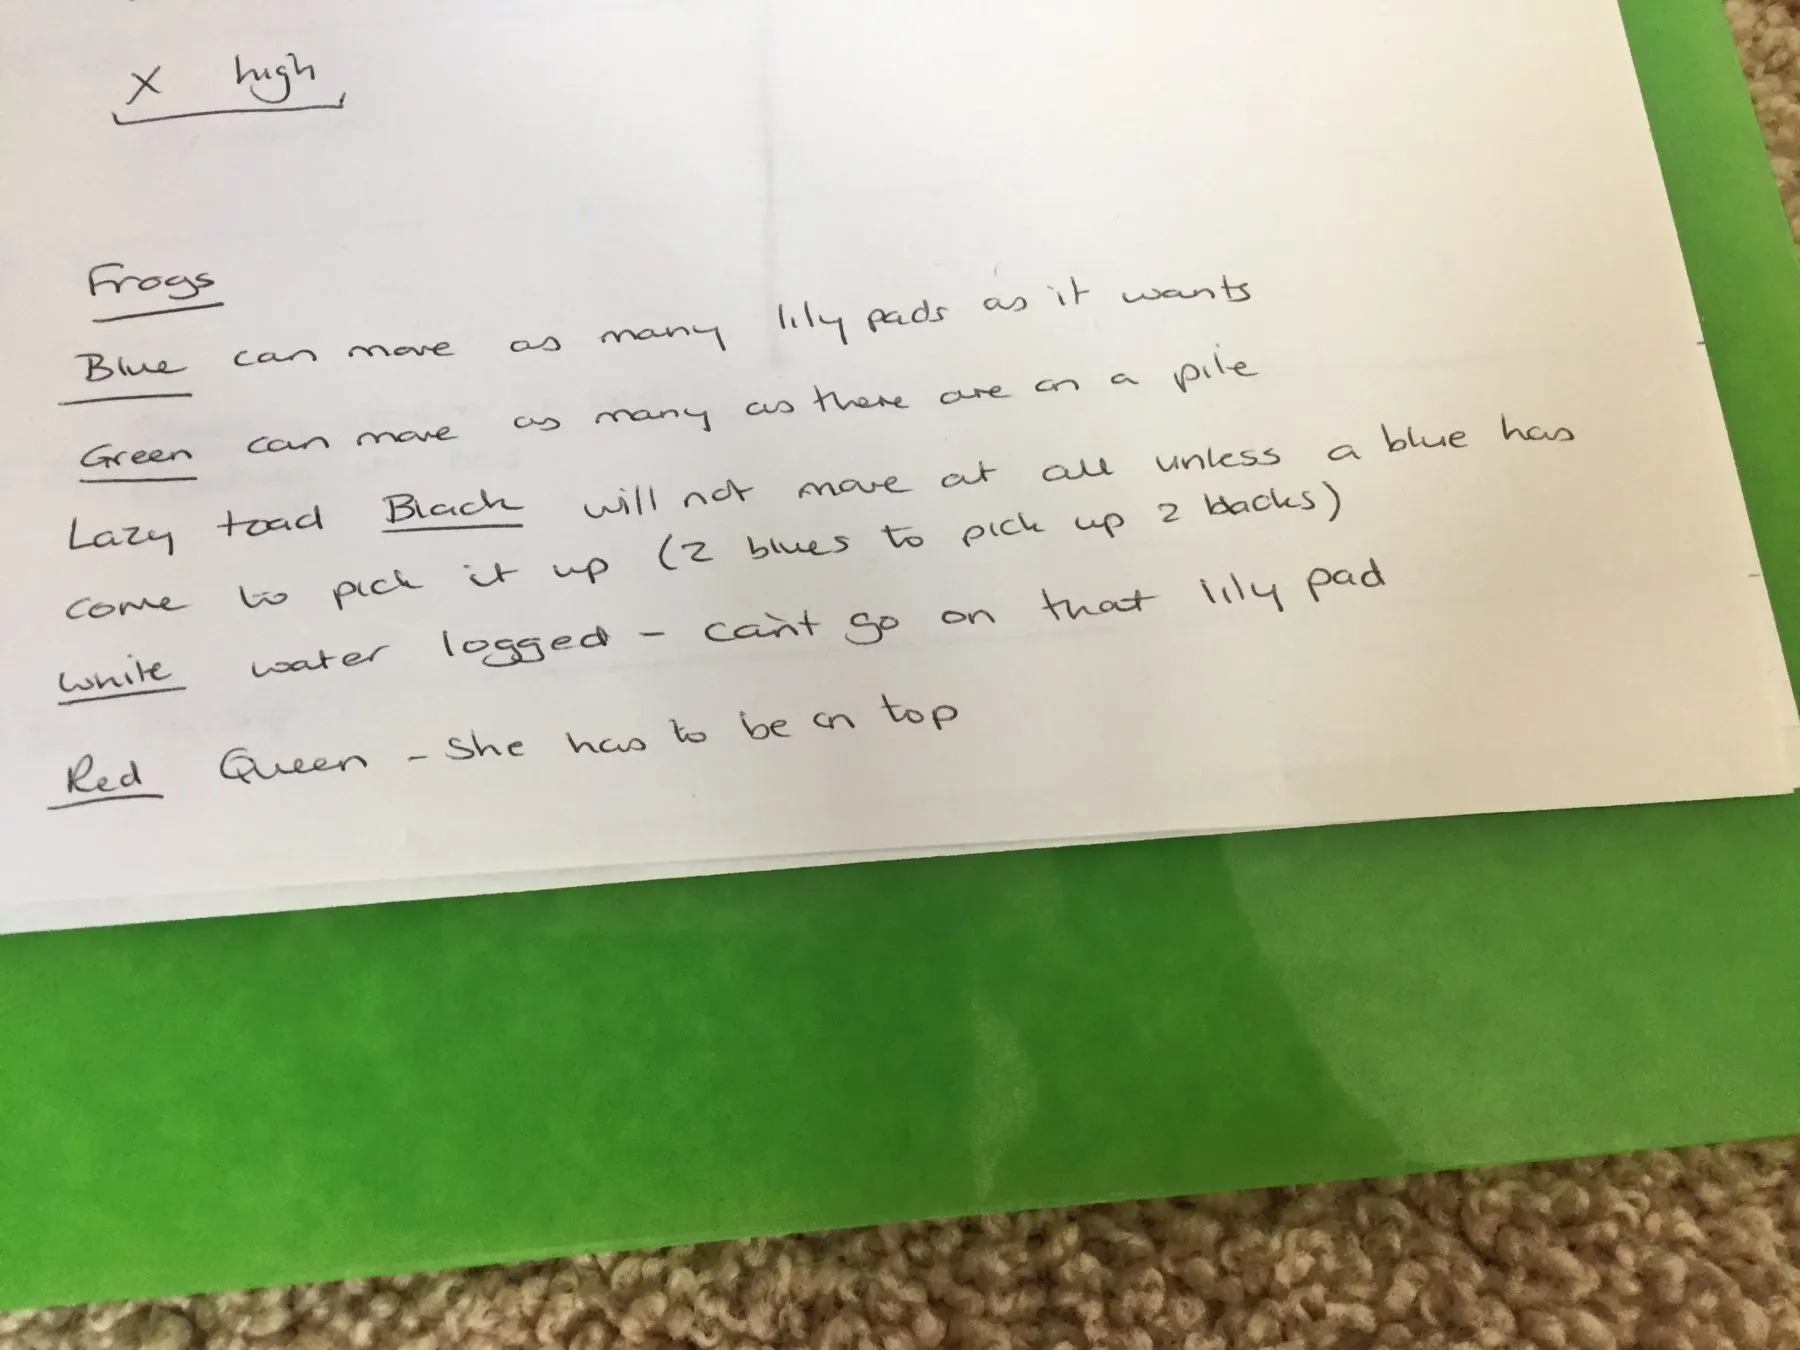 X high
Frogs
Blue can move as many lily pads as it wants
Green can move as many as there are on a pile
Lazy toad Black will not move at all unless a blue has
come to pick it up (2 blues to pick up 2 blacks)
White water logged - can't go on that lily pad
Red Queen - She has to be on top